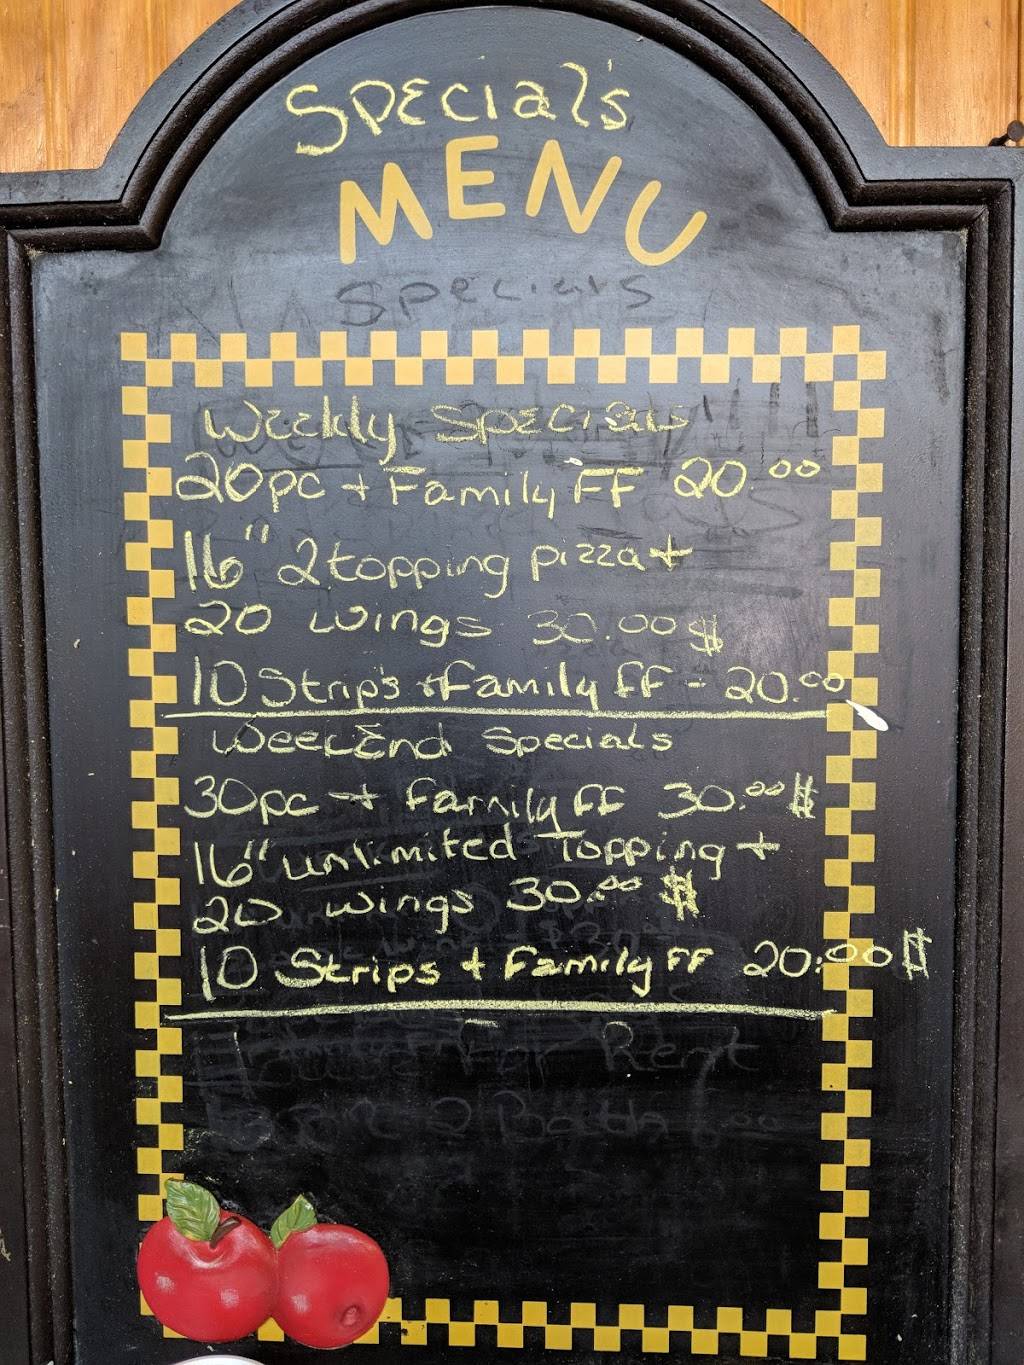 Special's
MENU
Specials
Weekly Specials
20pc + Family FF 20.00
16" 2 topping pizza +
20 wings 30.00$
10 Strip's + Family FF - 20.00
WeekEnd Specials
30pc + Family FF 30.00$
16" unlimited Topping +
20 wings 30.00 $
10 Strips + Family FF 20.00$
House For Rent
2 Bath